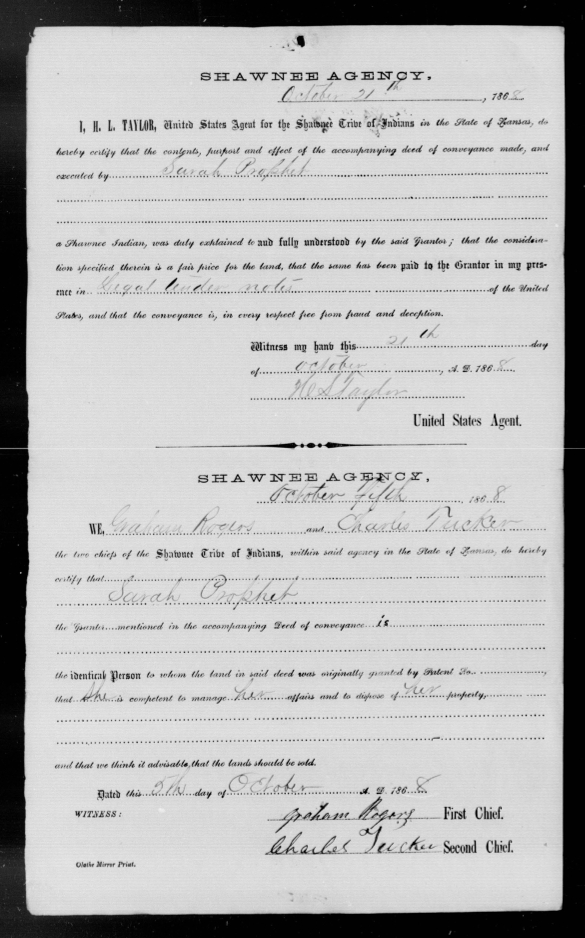 SHAWNEE AGENCY,
October 21th, 1868
I, H. L. TAYLOR, United States Agent for the Shawnee Tribe of Indians in the State of Kansas, do
hereby certify that the contents, purport and effect of the accompanying deed of conveyance made, and
executed by Sarah Prophet
a Shawnee Indian, was duly explained to and fully understood by the said Grantor; that the considera-
tion specified therein is a fair price for the land, that the same has been paid to the Grantor in my pres-
ence in Legal tender notes of the United
States, and that the conveyance is, in every respect free from fraud and deception.
Witness my hand this 21th day
of October, A. D. 1868
H L Taylor
United States Agent.
SHAWNEE AGENCY,
October fifth 1868
WE, Graham Rogers and Charles Tucker
the two chiefs of the Shawnee Tribe of Indians, within said agency in the State of Kansas, do hereby
certify that Sarah Prophet
the Grantor mentioned in the accompanying Deed of conveyance is
the identical Person to whom the land in said deed was originally granted by Patent
that She is competent to manage her affairs and to dispose of her property,
and that we think it advisable, that the lands should be sold.
Dated this 5th day of October A. D. 1868
WITNESS:
Graham Rogers First Chief.
Charles Tucker Second Chief.
Olathe Mirror Print.